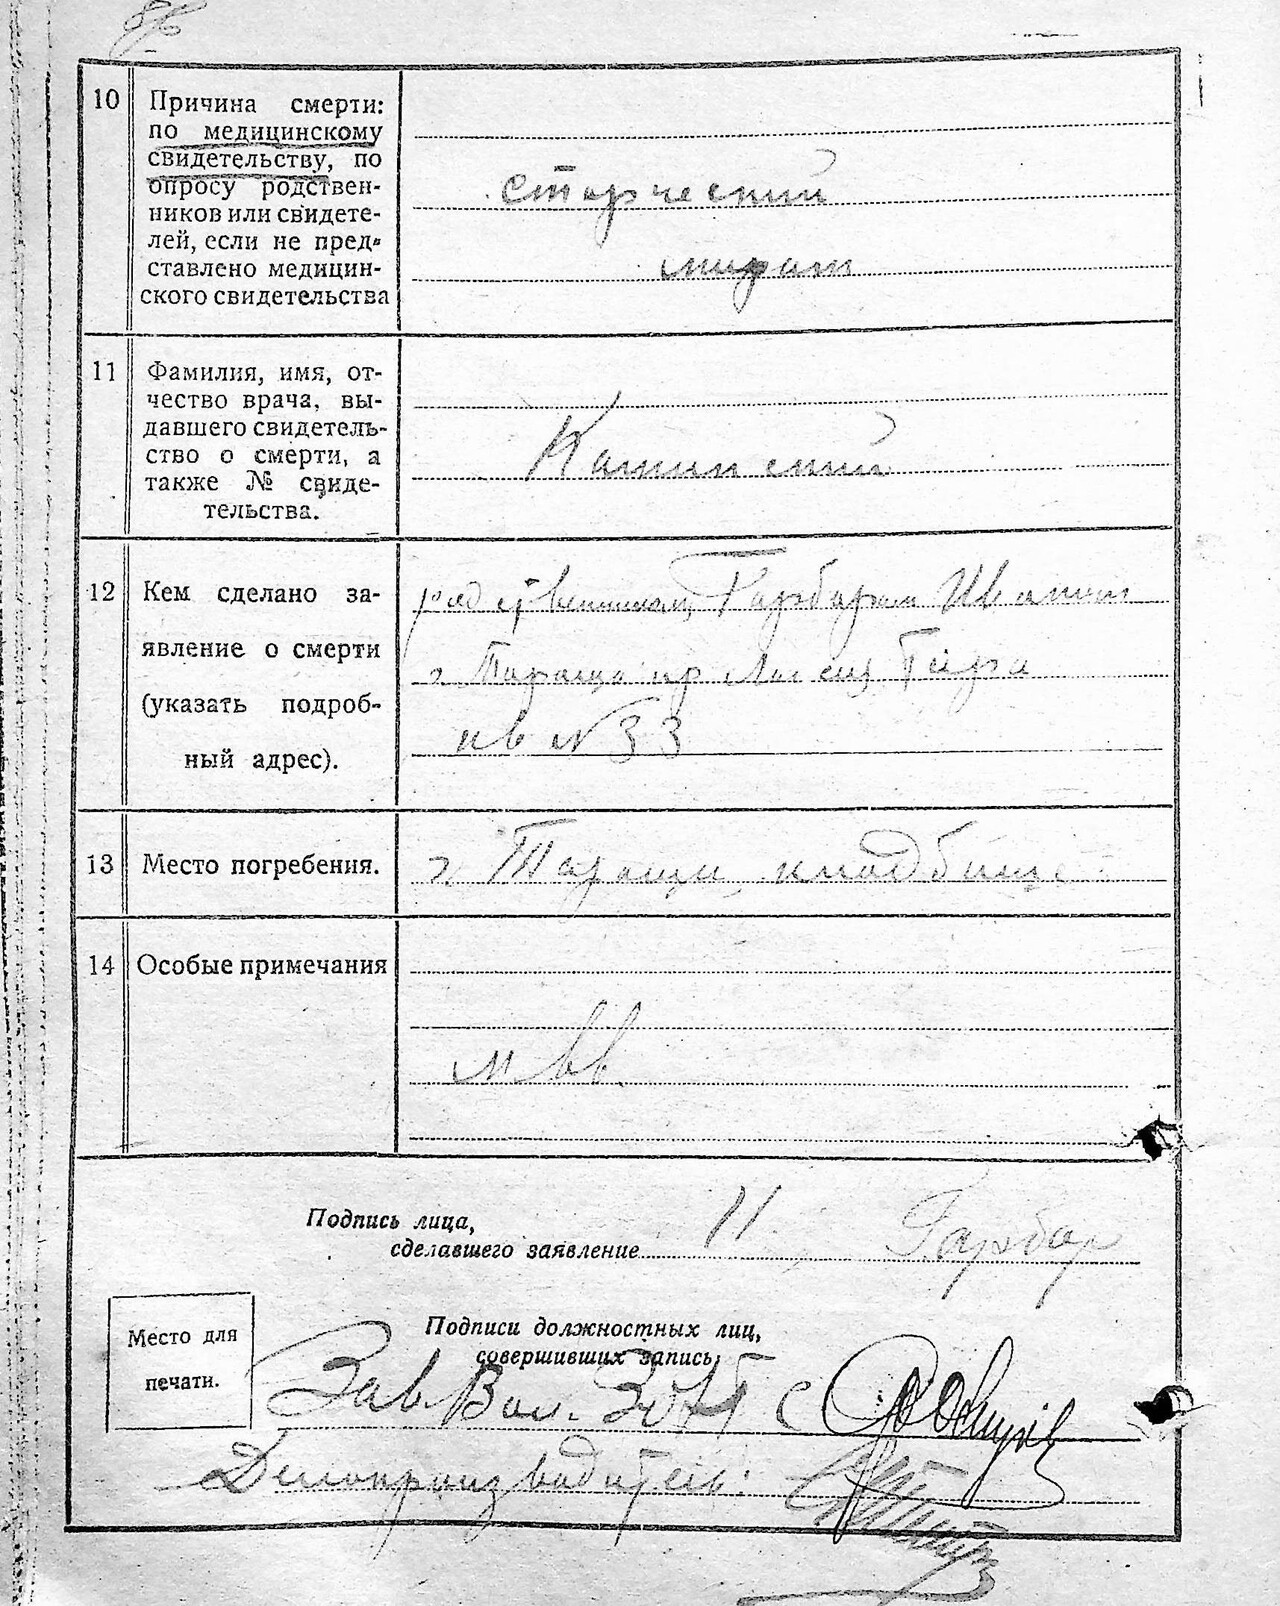 10
Причина смерти:
по медицинскому
свидетельству, по
опросу родствен-
ников или свидете-
лей, если не пред-
ставлено медицин-
ского свидетельства
старческий
11
Фамилия, имя, от-
чество врача, вы-
давшего свидетель-
ство о смерти, а
также № свиде-
тельства.
12
Кем сделано за-
явление о смерти
(указать подроб-
ный адрес).
Гарбарам Иваном
г Тараща
кв № 33
13
Место погребения.
г Тараща, кладбище
14
Особые примечания
Подпись лица,
сделавшего заявление
Гарбар
Место для
печати.
Подписи должностных лиц,
совершивших запись
Зав Вол.
Делопроизводитель